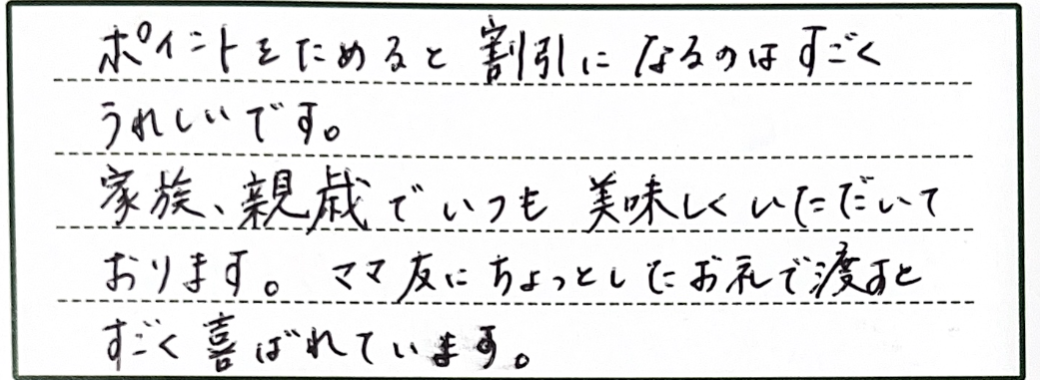 ポイントをためると割引になるのはすごく
うれしいです。
家族、親戚でいつも美味しくいただいて
おります。ママ友にちょっとしたお礼で渡すと
すごく喜ばれています。